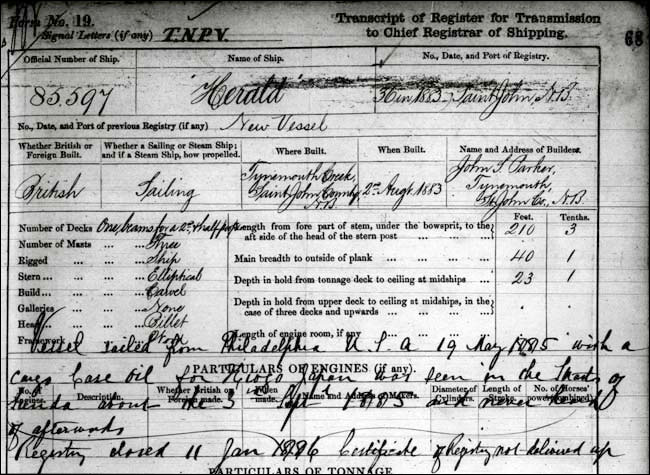 Form No. 19.
Signal Letters (if any) T.N.P.V.
Transcript of Register for Transmission
to Chief Registrar of Shipping.
68
Official Number of Ship.
Name of Ship.
No., Date, and Port of Registry.
85,597
"Herald"
36 in 1883 Saint John, N.B.
No., Date, and Port of previous Registry (if any) New Vessel
Whether British or Foreign Built.
Whether a Sailing or Steam Ship; and if a Steam Ship, how propelled.
Where Built.
When Built.
Name and Address of Builders.
British
Sailing
Tynemouth Creek,
Saint John County,
N.B.
2nd Augt. 1883
John S. Parker,
Tynemouth,
St. John Co., N.B.
Number of Decks One, beams for a 2nd & half poop
Number of Masts Three
Rigged Ship
Stern Elliptical
Build Carvel
Galleries None
Head Billet
Framework Wood
Feet. Tenths.
Length from fore part of stem, under the bowsprit, to the aft side of the head of the stern post 210 3
Main breadth to outside of plank 40 1
Depth in hold from tonnage deck to ceiling at midships 23 1
Depth in hold from upper deck to ceiling at midships, in the case of three decks and upwards
Length of engine room, if any
Vessel sailed from Philadelphia U.S.A 19 May 1885 with a
PARTICULARS OF ENGINES (if any).
cargo Case Oil for Japan was seen in the Straits of
No. of Engines. Description. Whether British or Foreign made. When made. Name and Address of Makers. Diameter of Cylinders. Length of Stroke. No. of Horses' power (combined).
about the 3 Sept 1885 and never heard
of afterwards
Registry closed 11 Jan 1886 Certificate of Registry not delivered up
PARTICULARS OF TONNAGE